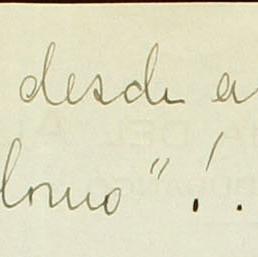 desde a
lomo" !.